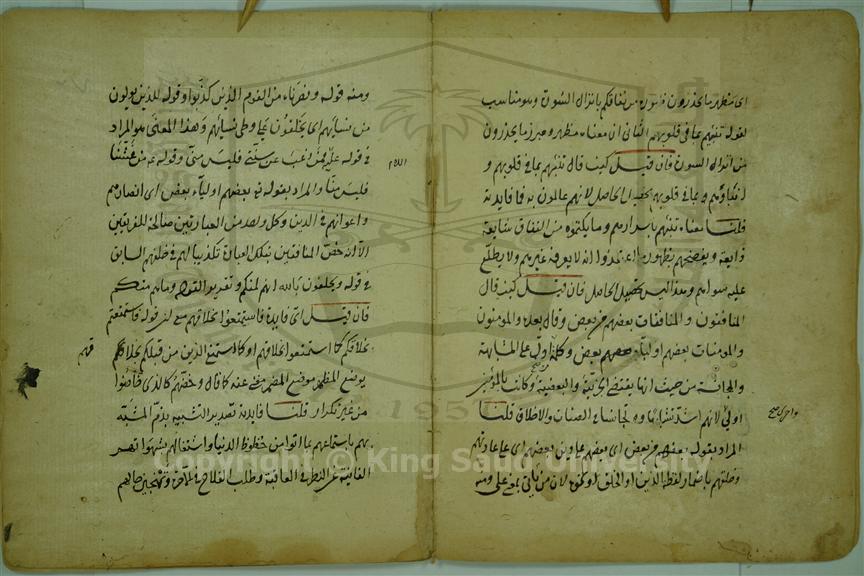 اى مظهر ما يحذرون من نفاقكم بانزال السورة وهو مناسب
لقوله تنبئهم بما فى قلوبهم الثانى ان معناه مظهر ومبرز ما يحذرون
من انزال السورة فان قيل كيف قال تنبئهم بما فى قلوبهم و
بما فى قلوبهم تحصيل الحاصل لانهم عالمون به فما فايدته
قلنا معناه تنبئهم باسرارهم وما يكتموه من النفاق شايعة
ذايعة ويفضحهم بظهور ما اعتقدوا انه لا يعرفه غيرهم ولا يطلع
عليه سواهم وهذا ليس تحصيل الحاصل فان قيل كيف قال
المنافقون والمنافقات بعضهم من بعض وقال بعده والمؤمنون
والمؤمنات بعضهم اولياء بعض وكلمة من ادل على المشابهة
والمجانسة من حيث انها تقتضى الجزئية والبعضية وكانت بالمؤمنين
اولى لانهم اشد تشابها وتجانسا فى الصفات والاخلاق قلنا
المراد بقوله بعضهم من بعض اى بعضهم على دين بعض اى على عادتهم
وخلقهم باضمار لفظة الدين او الخلق او نحوه لان من ياتى بمعنى على ومنه
ومنه قوله ونصرناه من القوم الذين كذبوا وقوله للذين يولون
من نسائهم اى يحلفون على وطى نسائهم وهذا المعنى هو المراد
فى قوله عليه السلام فمن رغب عن سنتى فليس منى وقوله من غشنا
فليس منا والمراد بقوله فيه بعضهم اولياء بعض اى انصارهم
واعوانهم فى الدين وكل واحد من العبارتين صالحة للفريقين
الا انه خص المنافقين بتلك العبارة تكذيبا لهم فى حلفهم السابق
فى قوله ويحلفون بالله انهم لمنكم وتقريرا لقوله وما هم منكم
فان قيل اى فايدة فى قوله فاستمتعوا بخلاقهم مع قوله فاستمتعتم
بخلاقكم كما استمتعوا بخلاقهم او كما استمتع الذين من قبلكم بخلاقهم
يوضع المظهر موضع المضمر مغن عنه كما قال وخضتم كالذى خاضوا
من غير تكرار قلنا فايدته تصدير التشبيه بذم المشبه
بهم باستمتاعهم بما اتوا من حظوظ الدنيا واشتغالهم بشهواتهم
الفانية عن النظر فى العاقبة وطلب الفلاح فى الاخرة وتهجين حالهم
Copyright © King Saud University
1957